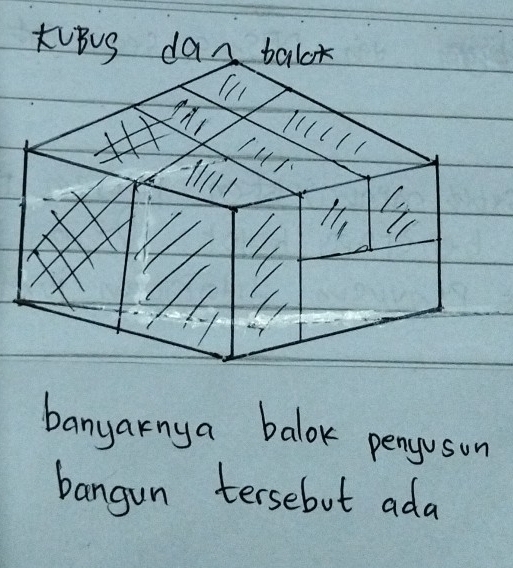 KUBUS dan balok
banyaknya balok penyusun
bangun tersebut ada